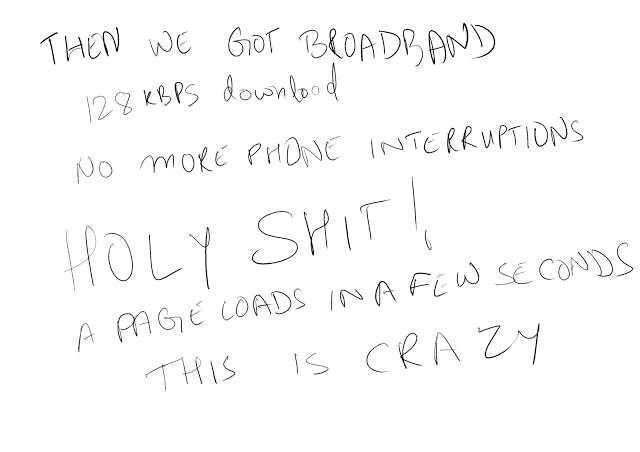 THEN WE GOT BROADBAND
128 KBPS download
NO MORE PHONE INTERRUPTIONS
HOLY SHIT!
A PAGE LOADS IN A FEW SECONDS
THIS IS CRAZY